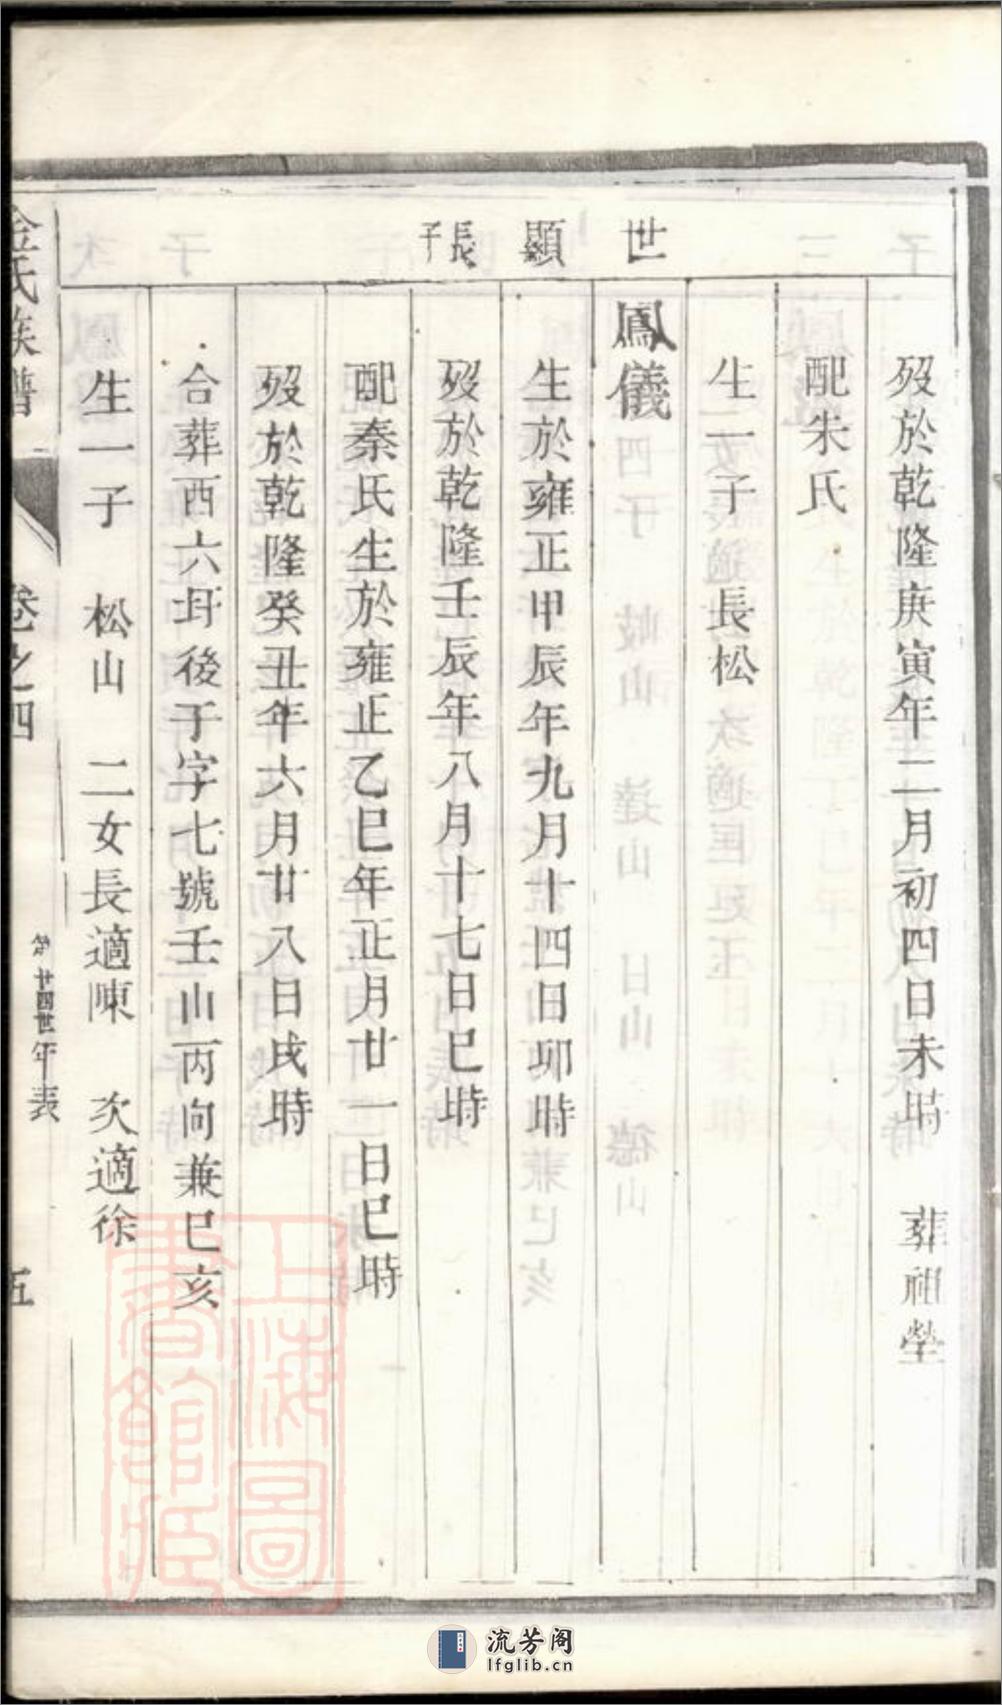 歿於乾隆庚寅年二月初四日未時 葬祖塋
配朱氏
生一子 長松
世顯長子
鳳儀
生於雍正甲辰年九月十四日卯時
歿於乾隆壬辰年八月十七日巳時
配秦氏生於雍正乙巳年正月廿一日巳時
歿於乾隆癸丑年六月廿八日戌時
合葬西六圩後于字七號壬山丙向兼巳亥
生一子 松山 二女長適陳 次適徐
金氏族譜 卷之四 第廿四世年表 五
上海圖書館藏
流芳阁
lfglib.cn